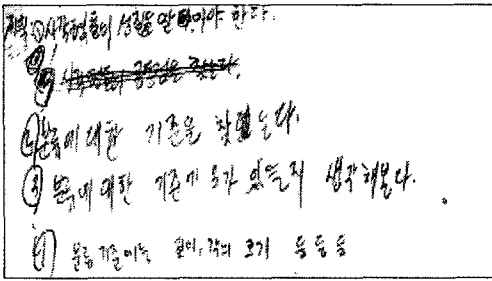 계획 ① 사각형들의 성질을 알아야 한다.
② 분류에 대한 기준을 찾는다.
③ 분류에 대한 기준이 또 있을지 생각해본다.
④ 분류 기준에는 길이, 각의 크기 등등등